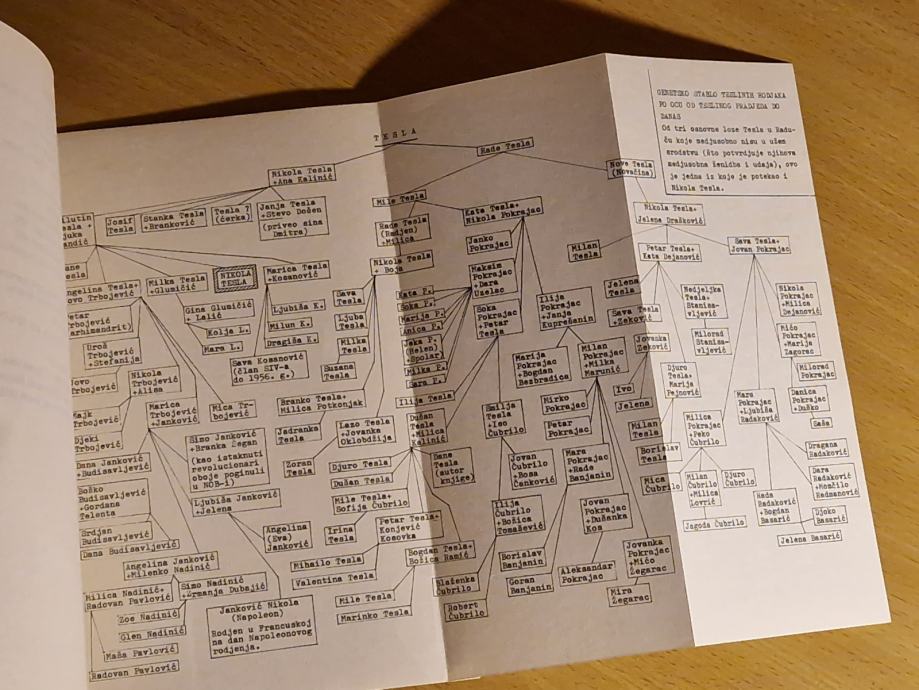 TESLA
GENETSKO STABLO TESLINIH RODJAKA
PO OCU OD TESLINOG PRADJEDA DO
DANAS
Od tri osnovne loze Tesla u Radu-
ču koje medjusobno nisu u užem
srodstvu (što potvrdjuje njihova
medjusobna ženidba i udaja), ovo
je jedna iz koje je potekao i
Nikola Tesla.
Rade Tesla
Nikola Tesla
+Ana Kalinić
Nove Tesla
(Novačina)
Josif
Tesla
Stanka Tesla
+Branković
Tesla ?
(ćerka)
Janja Tesla
+Stevo Došen
(priveo sina
Dmitra)
Mile Tesla
Rade Tesla
(Radjen)
+Milica
Kata Tesla+
Nikola Pokrajac
Janko
Pokrajac
Milan
Tesla
Nikola Tesla+
Jelena Drašković
Petar Tesla+
Kata Dejanović
Sava Tesla+
Jovan Pokrajac
Milka Tesla
+Glumičić
NIKOLA
TESLA
Marica Tesla
+Kosanović
Nikola Tesla
+ Boja
Maksim
Pokrajac
+Dara
Uzelac
Jelena
Tesla
Nedjeljka
Tesla+
Stanisa-
vljević
Nikola
Pokrajac
+Milica
Dejanović
Angelina Tesla+
Trbojević
Gina Glumičić
+ Lalić
Kolja L.
Mara L.
Ljubiša K.
Milun K.
Dragiša K.
Sava Kosanović
(član SIV-a
do 1956. g.)
Sava
Tesla
Ljuba
Tesla
Milka
Tesla
Suzana
Tesla
Kata P.
Soka P.
Marija P.
Anica P.
Jeka P.
(Helen)
+Spolar
Milka P.
Sara P.
Ilija Tesla
Soka
Pokrajac
+ Petar
Tesla
Ilija
Pokrajac
+Janja
Kuprešanin
Sava Tesla
+Zeković
Jovanka
Zeković
Milorad
Stanisa-
vljević
Mićo
Pokrajac
+Marija
Zagorac
Milorad
Pokrajac
Danica
Pokrajac
+Duško
Saša
Uroš
Trbojević
+Stefanija
Nikola
Trbojević
+Alisa
Marica
Trbojević
+Janković
Mica Tr-
bojević
Branko Tesla+
Milica Potkonjak
Marija
Pokrajac
+Bogdan
Bezbradica
Milan
Pokrajac
+Milka
Marunić
Ivo
Jelena
Djuro
Tesla+
Marija
Pejnović
Mara
Pokrajac
+Ljubiša
Radaković
Djeki
Trbojević
Dana Janković
+Budisavljević
Simo Janković
+Branka Žegan
(kao istaknuti
revolucionari
oboje poginuli
u NOB-i)
Jadranka
Tesla
Lazo Tesla
+Jovanka
Oklobdžija
Dušan
Tesla
+Milica
Kalinić
Smilja
Tesla
+Iso
Čubrilo
Mirko
Pokrajac
Petar
Pokrajac
Milan
Tesla
Borislav
Tesla
Milica
Pokrajac
+Peko
Čubrilo
Dragana
Radaković
Boško
Budisavljević
+Gordana
Telenta
Ljubiša Janković
+Jelena
Zoran
Tesla
Djuro Tesla
Dušan Tesla
Mile Tesla+
Sofija Čubrilo
Dane
Tesla
(autor
knjige)
Jovan
Čubrilo
+Rosa
Čanković
Mara
Pokrajac
+Rade
Banjanin
Mica
Čubrilo
Milan
Čubrilo
+Milica
Lovrić
Djuro
Čubrilo
Jagoda Čubrilo
Rada
Radaković
+Bogdan
Basarić
Dara
Radaković
+Momčilo
Radmanović
Djoko
Basarić
Jelena Basarić
Srdjan
Budisavljević
Dana Budisavljević
Angelina
(Eva)
Janković
Irina
Tesla
Petar Tesla+
Konjević
Kosovka
Ilija
Čubrilo
+Božica
Tomašević
Jovan
Pokrajac
+Dušanka
Kos
Angelina Janković
+Milenko Nadinić
Mihailo Tesla
Valentina Tesla
Bogdan Tesla+
Božica Ramić
Borislav
Banjanin
Jovanka
Pokrajac
+Mićo
Žegarac
Milica Nadinić+
Radovan Pavlović
Simo Nadinić
+Zrmanja Dubajić
Zoe Nadinić
Glen Nadinić
Janković Nikola
(Napoleon)
Rodjen u Francuskoj
na dan Napoleonovog
rodjenja.
Mile Tesla
Marinko Tesla
Blaženka
Čubrilo
Robert
Čubrilo
Goran
Banjanin
Aleksandar
Pokrajac
Mira
Žegarac
Maša Pavlović
Radovan Pavlović